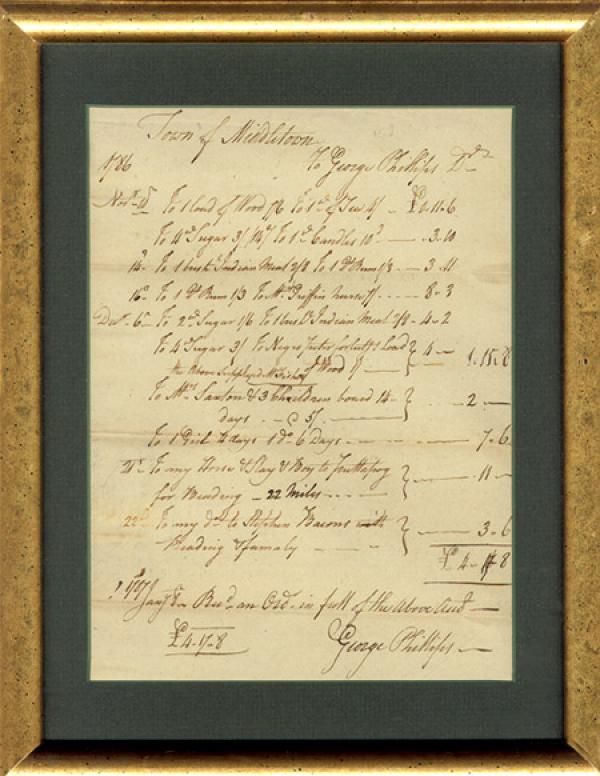 Town of Middletown
1786 To George Phillips Dr
Novr To 1 load of Wood 7/6 To 1 of Tea 4/ - £0-11-6
To 4d Sugar 3/ To 1d Candles 10d - 3-10
14 To 1 bush Indian Meal 2/8 To 1 Rum 1/3 - 3-11
16 To 1 Rum 1/3 To Mrs Griffin nurse 7/ - 8-3
Decr 6 To 2d Sugar 1/6 To 1 bush Indian Meal 2/8 - 4-2
To 4d Sugar 3/ To Negro 1 Load } 4 - 1-15-8
the Above Supplyed of Wood 1/
To Mrs Saxton & 3 Children board 14 } - 2 -
days @ 5/
To 1 Girl 2 days 1 Do 6 Days - 7-6
21 To my Horse & Slay & Boy to } - 11 -
for Reading - 22 Miles
22 To my do to Stephen Bacons with } - 3-6
Reading & famaly
£4-17-8
Jany Recd an Ordr in full of the Above
£4-17-8 George Phillips